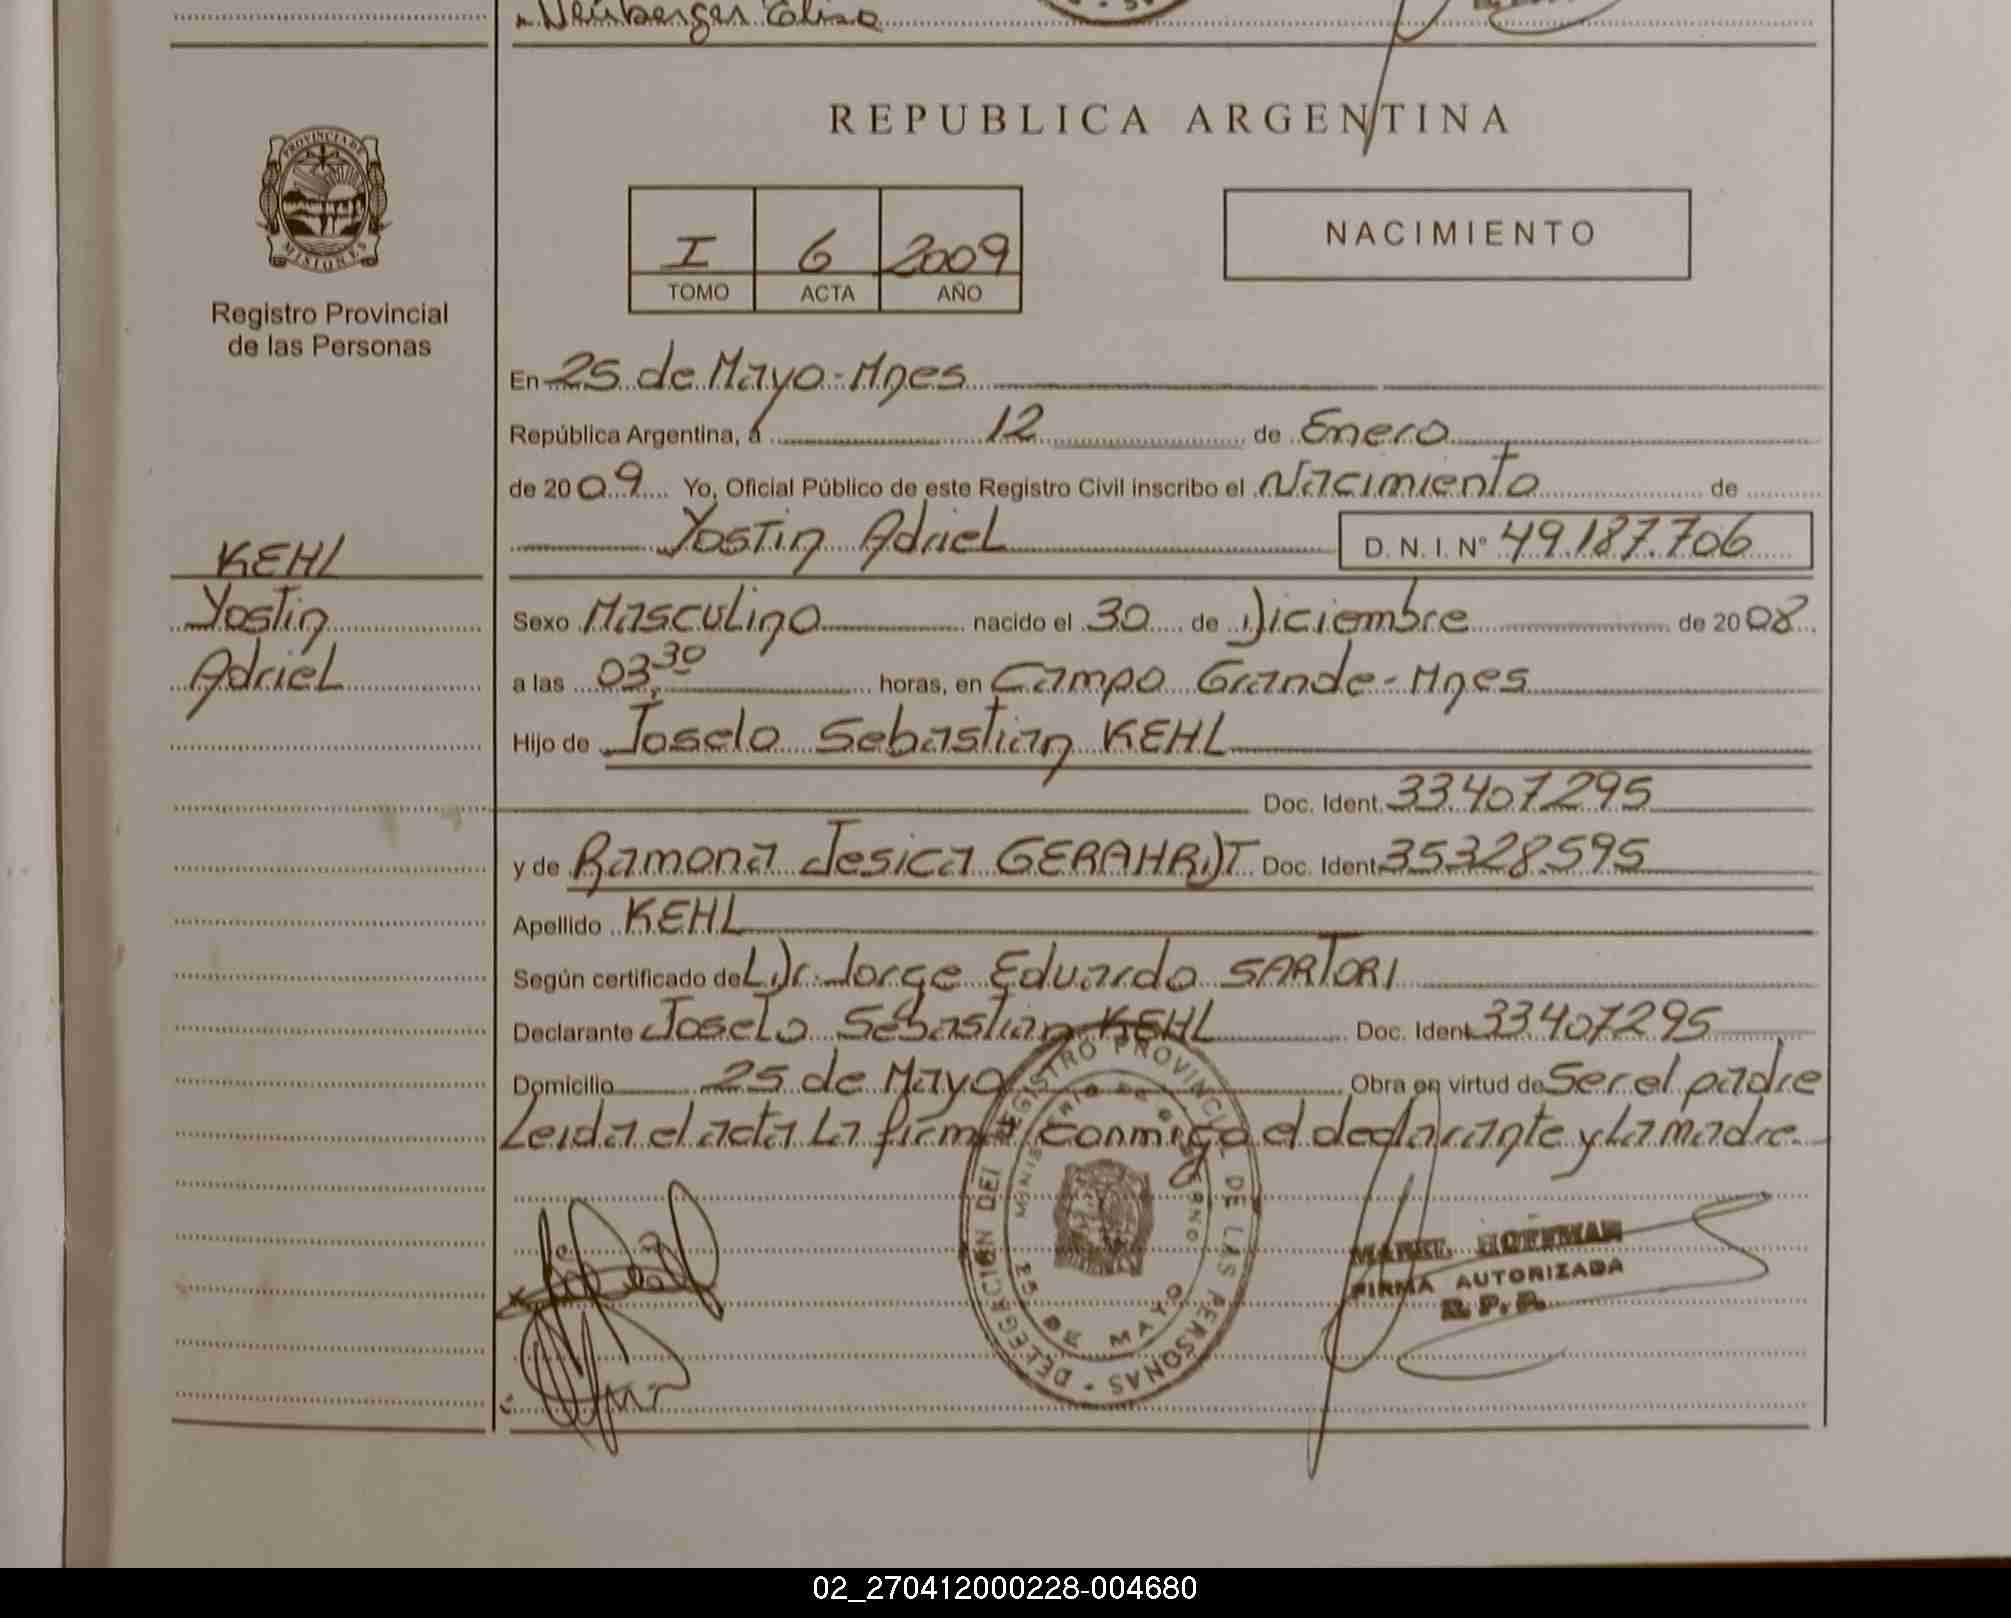 Neuberger Celina
REPUBLICA ARGENTINA
PROVINCIA DE MISIONES
Registro Provincial
de las Personas
I 6 2009
TOMO ACTA AÑO
NACIMIENTO
En 25 de Mayo - Mnes
República Argentina, a 12 de Enero
de 2009 Yo, Oficial Público de este Registro Civil inscribo el Nacimiento de
Yostin Adriel D. N. I. Nº 49.187.706
KEHL
Yostin
Adriel
Sexo Masculino nacido el 30 de Diciembre de 2008
a las 03,30 horas, en Campo Grande - Mnes
Hijo de Joselo Sebastian KEHL
Doc. Ident. 33407295
y de Ramona Jesica GERAHRDT Doc. Ident. 35328595
Apellido KEHL
Según certificado del Dr. Jorge Eduardo SARTORI
Declarante Joselo Sebastian KEHL Doc. Ident. 33407295
Domicilio 25 de Mayo Obra en virtud de Ser el padre
Leida el acta La firma conmigo el declarante y La madre
DELEGACION DEL REGISTRO PROVINCIAL DE LAS PERSONAS -
MINISTERIO DE GOBIERNO
25 DE MAYO
HOFFMAN
FIRMA AUTORIZADA
R. P. P.
02_270412000228-004680